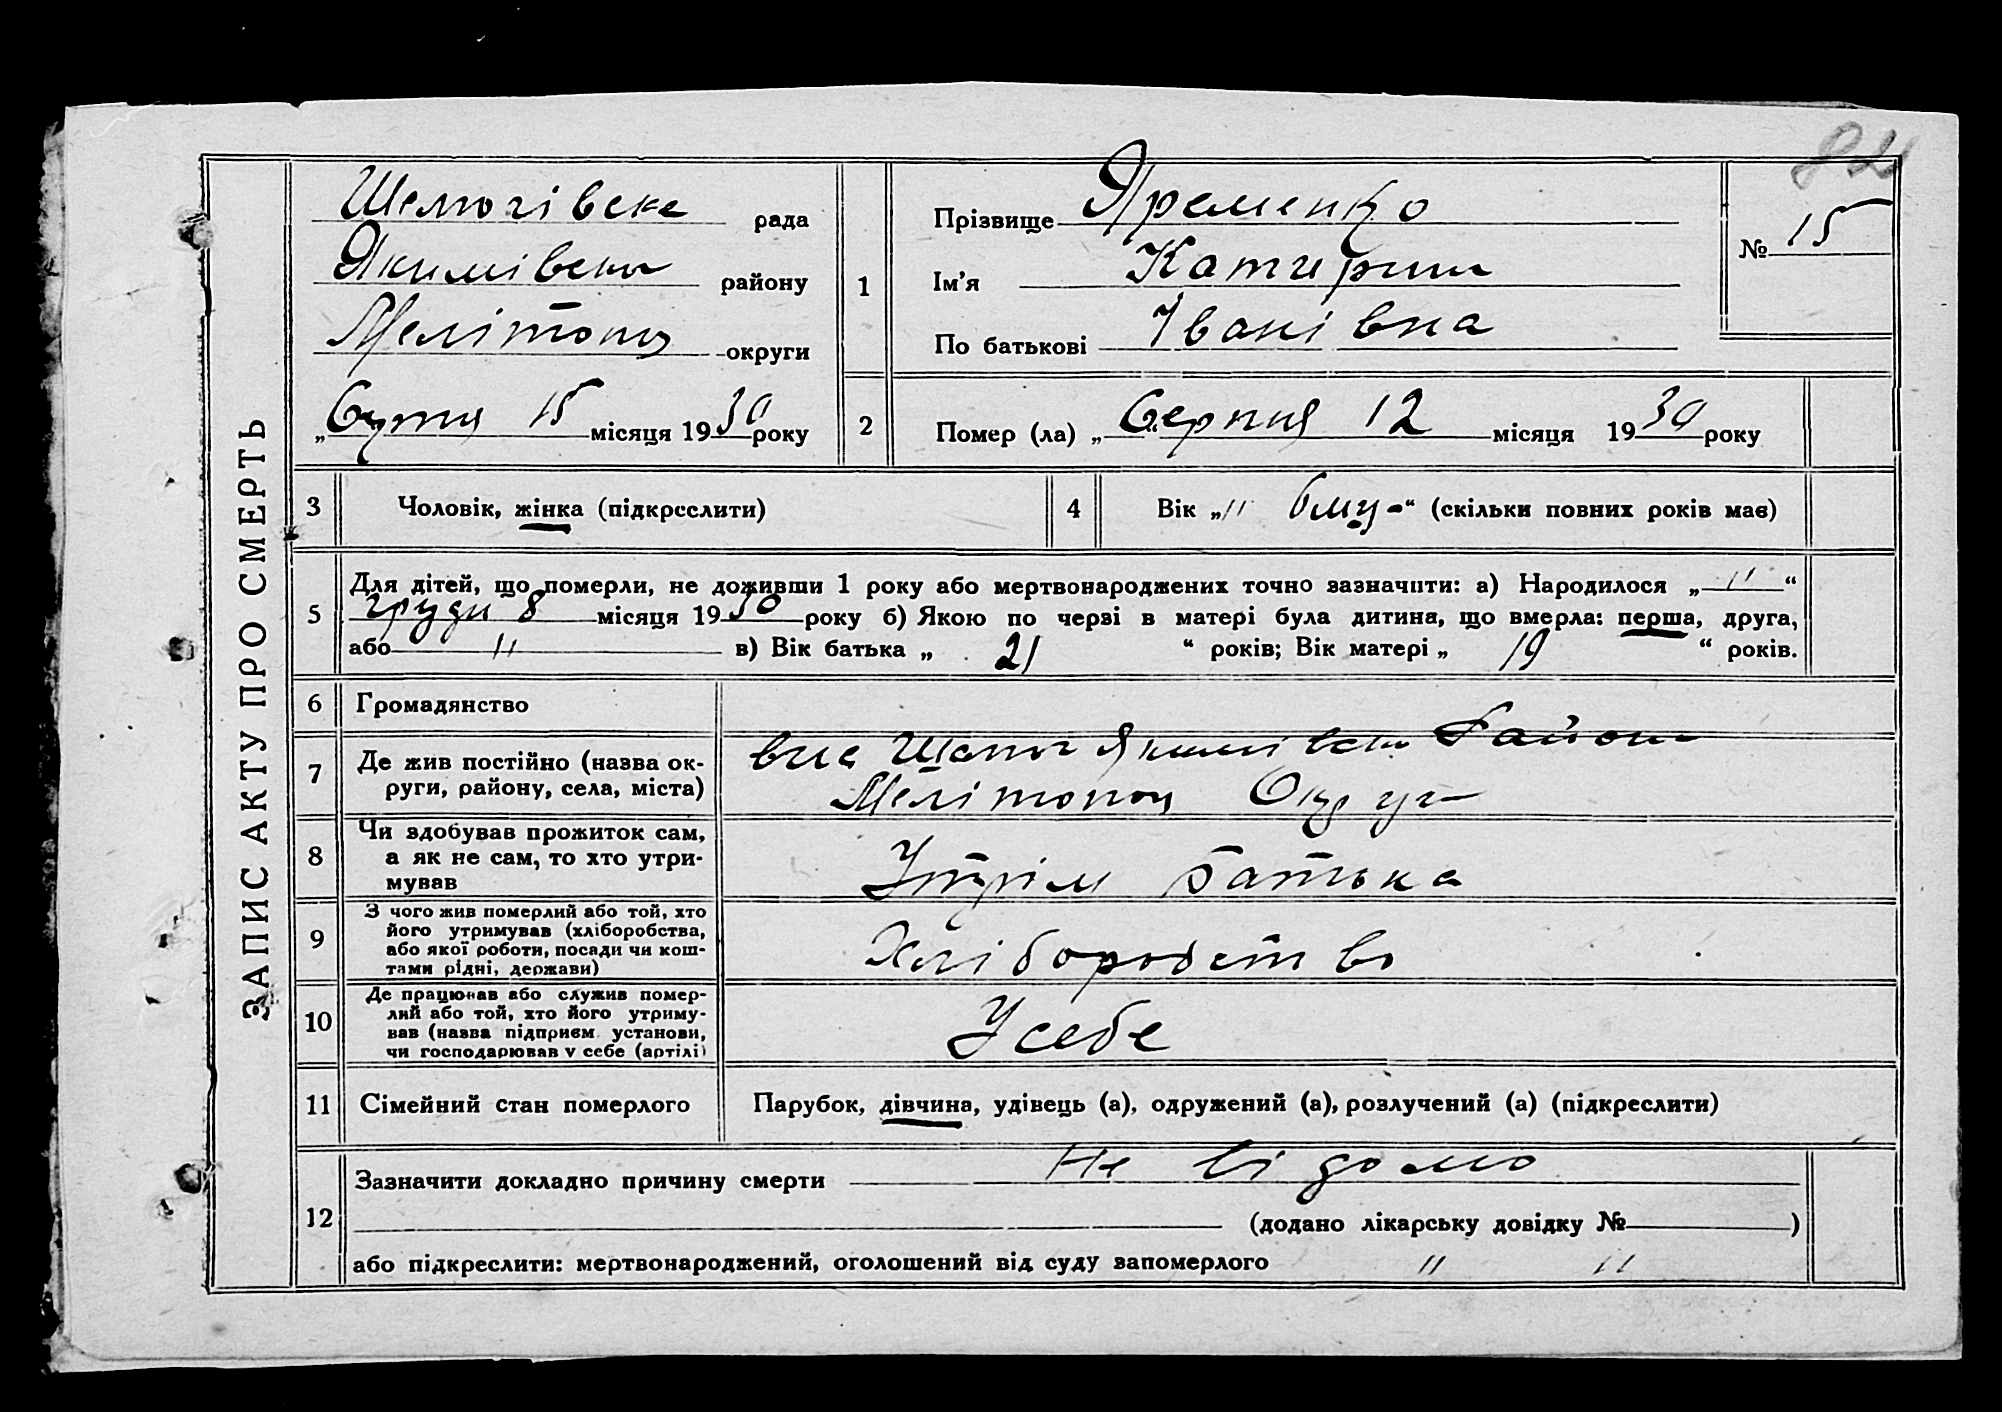 ЗАПИС АКТУ ПРО СМЕРТЬ
рада
Якимівськ району
Мелітопол округи
„ 15 місяця 1930 року
1
Прізвище Яременко
Ім'я Катирина
По батькові Іванівна
№ 15
2
Помер (ла) „Серпня 12 місяця 1930 року
3 Чоловік, жінка (підкреслити)
4 Вік „ 8 міц “ (скільки повних років має)
5 Для дітей, що померли, не доживши 1 року або мертвонароджених точно зазначити: а) Народилося „ 11 “
груди 8 місяця 1930 року б) Якою по черзі в матері була дитина, що вмерла: перша, друга,
або 11 в) Вік батька „ 21 “ років; Вік матері „ 19 “ років.
6 Громадянство
7 Де жив постійно (назва ок-
руги, району, села, міста)
Якимівськ Район
Мелітопол Округ
8 Чи здобував прожиток сам,
а як не сам, то хто утри-
мував
Утрім батька
9 З чого жив померлий або той, хто
його утримував (хліборобства,
або якої роботи, посади чи кош-
тами рідні, держави)
Хліборобство
10 Де працював або служив помер-
лий або той, хто його утриму-
вав (назва підприєм. установи,
чи господарював у себе (артілі)
У себе
11 Сімейний стан померлого
Парубок, дівчина, удівець (а), одружений (а), розлучений (а) (підкреслити)
12 Зазначити докладно причину смерти Не відомо
(додано лікарську довідку № )
або підкреслити: мертвонароджений, оголошений від суду запомерлого 11 11